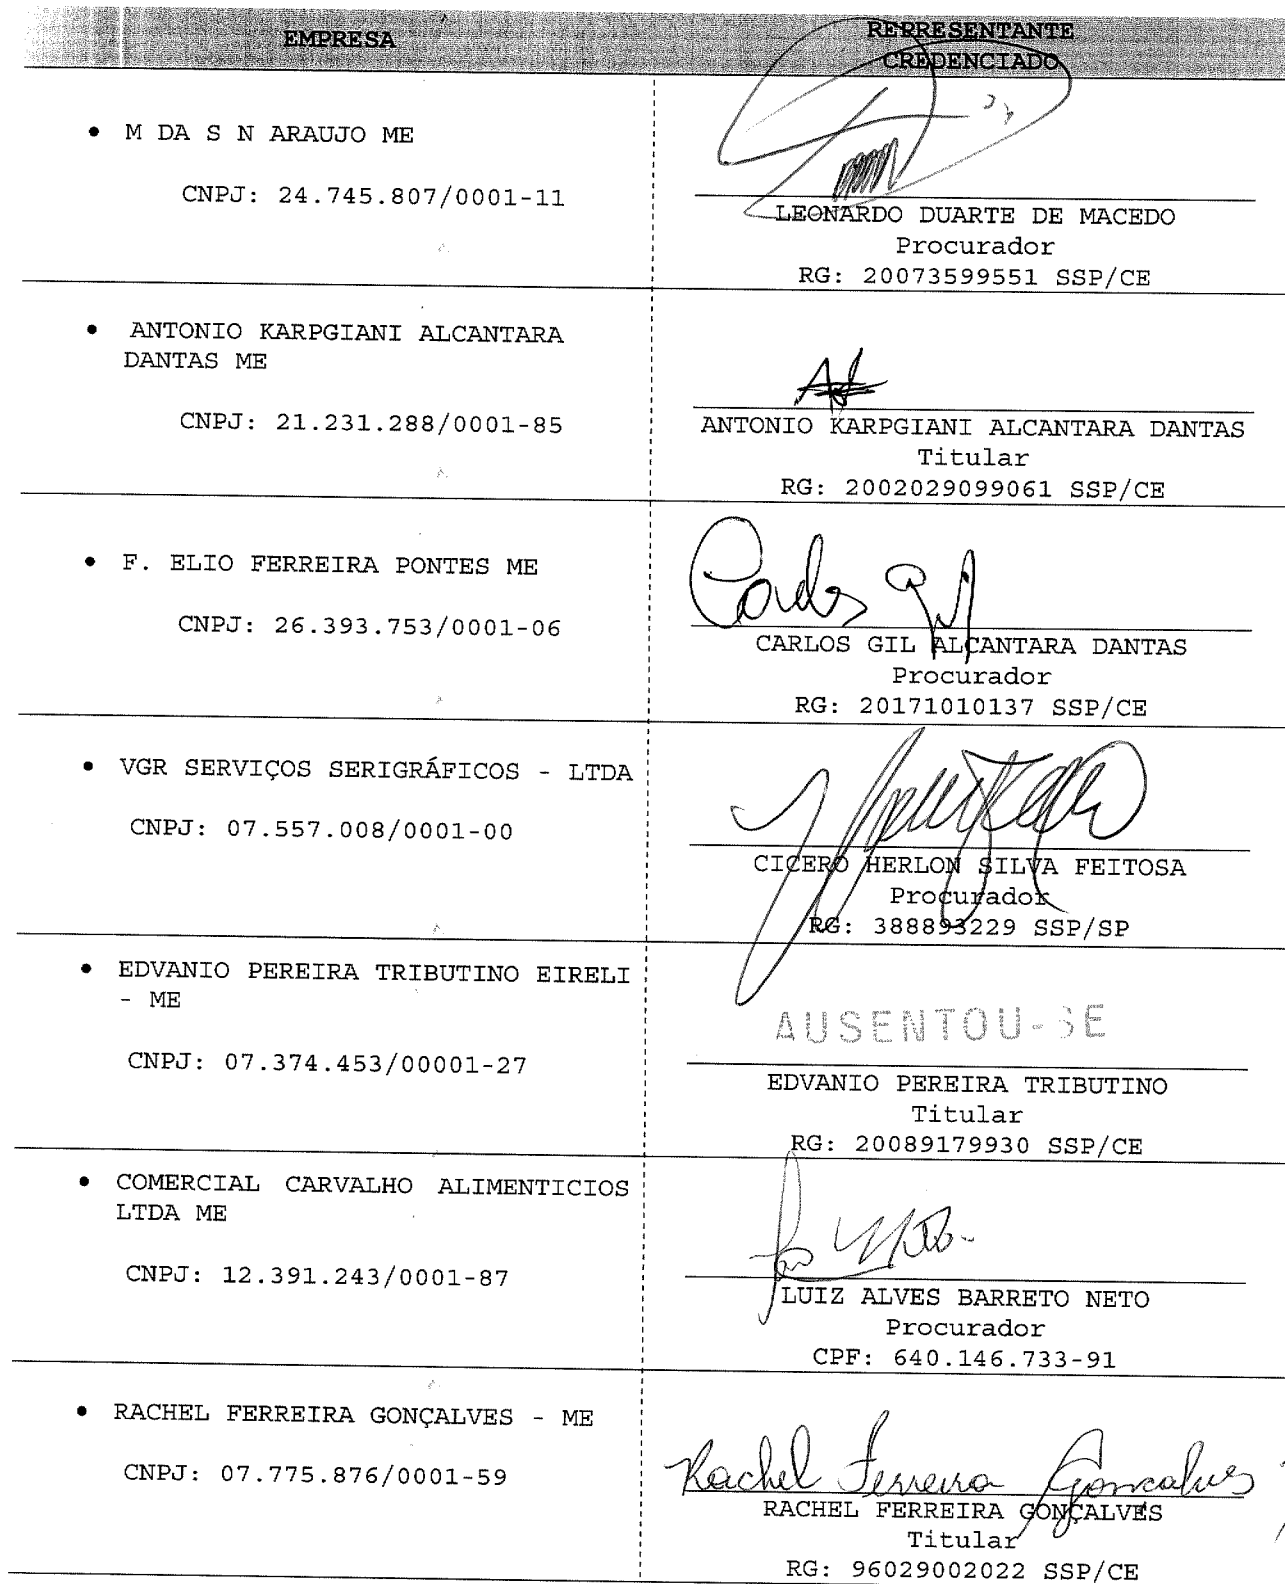 EMPRESA
REPRESENTANTE
CREDENCIADO
• M DA S N ARAUJO ME
CNPJ: 24.745.807/0001-11
LEONARDO DUARTE DE MACEDO
Procurador
RG: 20073599551 SSP/CE
• ANTONIO KARPGIANI ALCANTARA
DANTAS ME
CNPJ: 21.231.288/0001-85
ANTONIO KARPGIANI ALCANTARA DANTAS
Titular
RG: 2002029099061 SSP/CE
• F. ELIO FERREIRA PONTES ME
CNPJ: 26.393.753/0001-06
Carlos Gil
CARLOS GIL ALCANTARA DANTAS
Procurador
RG: 20171010137 SSP/CE
• VGR SERVIÇOS SERIGRÁFICOS - LTDA
CNPJ: 07.557.008/0001-00
CICERO HERLON SILVA FEITOSA
Procurador
RG: 388893229 SSP/SP
• EDVANIO PEREIRA TRIBUTINO EIRELI
- ME
CNPJ: 07.374.453/00001-27
AUSENTOU-SE
EDVANIO PEREIRA TRIBUTINO
Titular
RG: 20089179930 SSP/CE
• COMERCIAL CARVALHO ALIMENTICIOS
LTDA ME
CNPJ: 12.391.243/0001-87
LUIZ ALVES BARRETO NETO
Procurador
CPF: 640.146.733-91
• RACHEL FERREIRA GONÇALVES - ME
CNPJ: 07.775.876/0001-59
Rachel Ferreira Gonçalves
RACHEL FERREIRA GONÇALVES
Titular
RG: 96029002022 SSP/CE